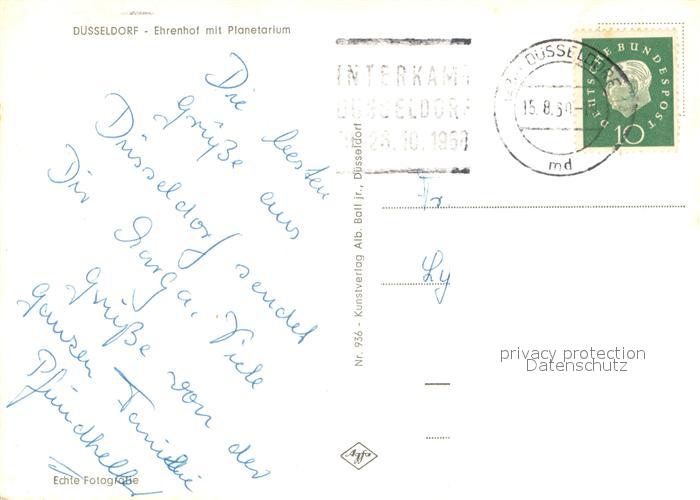 DÜSSELDORF - Ehrenhof mit Planetarium
Die besten
Grüße aus
Düsseldorf sendet
Dir Viele
Grüße von der
ganzen Familie
Echte Fotografie
Nr. 936 - Kunstverlag Alb. Batt jr., Düsseldorf
Agfa
INTERKAMA
DÜSSELDORF
28. 10. 1960
DÜSSELDORF
15. 8. 60
md
DEUTSCHE BUNDESPOST
10
Fr.
Ly
privacy protection
Datenschutz